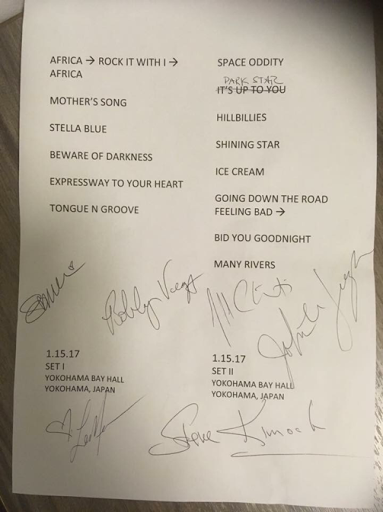 AFRICA → ROCK IT WITH I →
AFRICA
MOTHER'S SONG
STELLA BLUE
BEWARE OF DARKNESS
EXPRESSWAY TO YOUR HEART
TONGUE N GROOVE
SPACE ODDITY
DARK STAR
IT'S UP TO YOU
HILLBILLIES
SHINING STAR
ICE CREAM
GOING DOWN THE ROAD
FEELING BAD →
BID YOU GOODNIGHT
MANY RIVERS
1.15.17
SET I
YOKOHAMA BAY HALL
YOKOHAMA, JAPAN
1.15.17
SET II
YOKOHAMA BAY HALL
YOKOHAMA, JAPAN
Steve Kimock